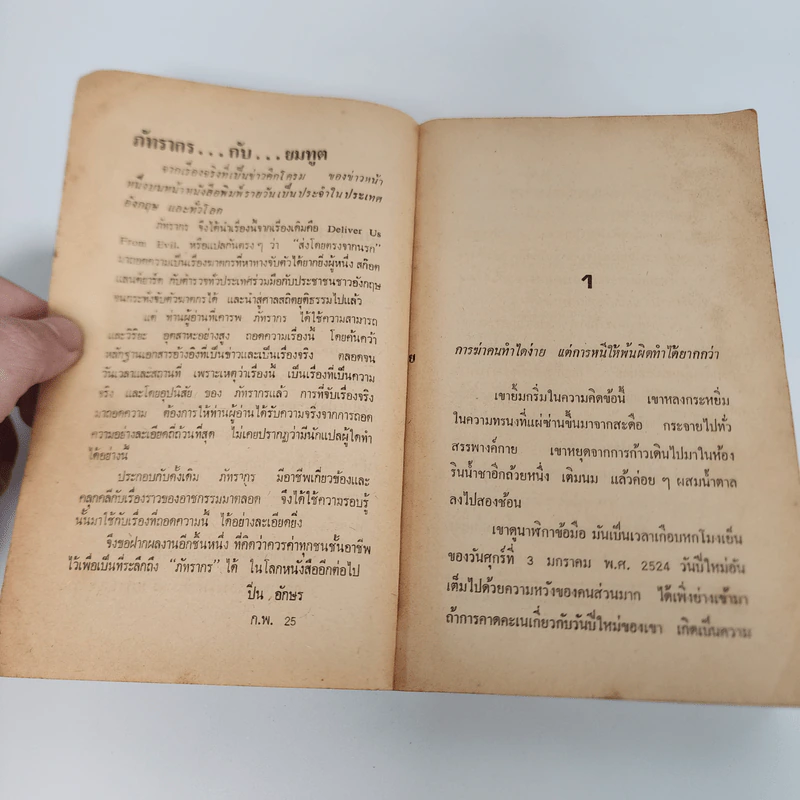 ภัทรากร...กับ...ยมทูต
จากเรื่องจริงที่เป็นข่าวคึกโครม ของข่าวหน้า
หนึ่งบนหน้าหนังสือพิมพ์รายวันเป็นประจำในประเทศ
อังกฤษ และทั่วโลก
ภัทรากร จึงได้นำเรื่องนี้จากเรื่องเดิมคือ Deliver Us
From Evil. หรือแปลกันตรงๆ ว่า "ส่งโดยตรงจากนรก"
มาถอดความเป็นเรื่องฆาตกรที่หาทางจับตัวได้ยากยิ่งผู้หนึ่ง สก๊อต
แลนด์ยาร์ด กับตำรวจทั่วประเทศร่วมมือกับประชาชนชาวอังกฤษ
จนกระทั่งจับตัวฆาตกรได้ และนำสู่ศาลสถิตยุติธรรมไปแล้ว
แต่ ท่านผู้อ่านที่เคารพ ภัทรากร ได้ใช้ความสามารถ
และวิริยะ อุตสาหะอย่างสูง ถอดความเรื่องนี้ โดยค้นคว้า
หลักฐานเอกสารอ้างอิงที่เป็นข่าวและเป็นเรื่องจริง ตลอดจน
วันเวลาและสถานที่ เพราะเหตุว่าเรื่องนี้ เป็นเรื่องที่เป็นความ
จริง และโดยอุปนิสัย ของ ภัทรากรแล้ว การที่จับเรื่องจริง
มาถอดความ ต้องการให้ท่านผู้อ่านได้รับความจริงจากการถอด
ความอย่างละเอียดถี่ถ้วนที่สุด ไม่เคยปรากฏว่ามีนักแปลผู้ใดทำ
ได้อย่างนี้
ประกอบกับดั้งเดิม ภัทรากร มีอาชีพเกี่ยวข้องและ
คลุกคลีกับเรื่องราวของอาชกรรมมาตลอด จึงได้ใช้ความรอบรู้
นั้นมาใช้กับเรื่องที่ถอดความนี้ ได้อย่างละเอียดยิ่ง
จึงขอฝากผลงานอีกชิ้นหนึ่ง ที่คิดว่าควรค่าทุกชนชั้นอาชีพ
ไว้เพื่อเป็นที่ระลึกถึง "ภัทรากร" ได้ ในโลกหนังสืออีกต่อไป
ปิ่น อักษร
ก.พ. 25
ย
1
การฆ่าคนทำใดง่าย แต่การหนีให้พ้นผิดทำได้ยากกว่า
เขายิ้มกริ่มในความคิดข้อนี้ เขาหลงกระหยิ่ม
ในความทรนงที่แผ่ซ่านขึ้นมาจากสะดือ กระจายไปทั่ว
สรรพางค์กาย เขาหยุดจากการก้าวเดินไปมาในห้อง
รินน้ำชาอีกถ้วยหนึ่ง เติมนม แล้วค่อย ๆ ผสมน้ำตาล
ลงไปสองช้อน
เขาดูนาฬิกาข้อมือ มันเป็นเวลาเกือบหกโมงเย็น
ของวันศุกร์ที่ 3 มกราคม พ.ศ. 2524 วันปีใหม่อัน
เต็มไปด้วยความหวังของคนส่วนมาก ได้เพิ่งย่างเข้ามา
ถ้าการคาดคะเนเกี่ยวกับวันปีใหม่ของเขา เกิดเป็นความ